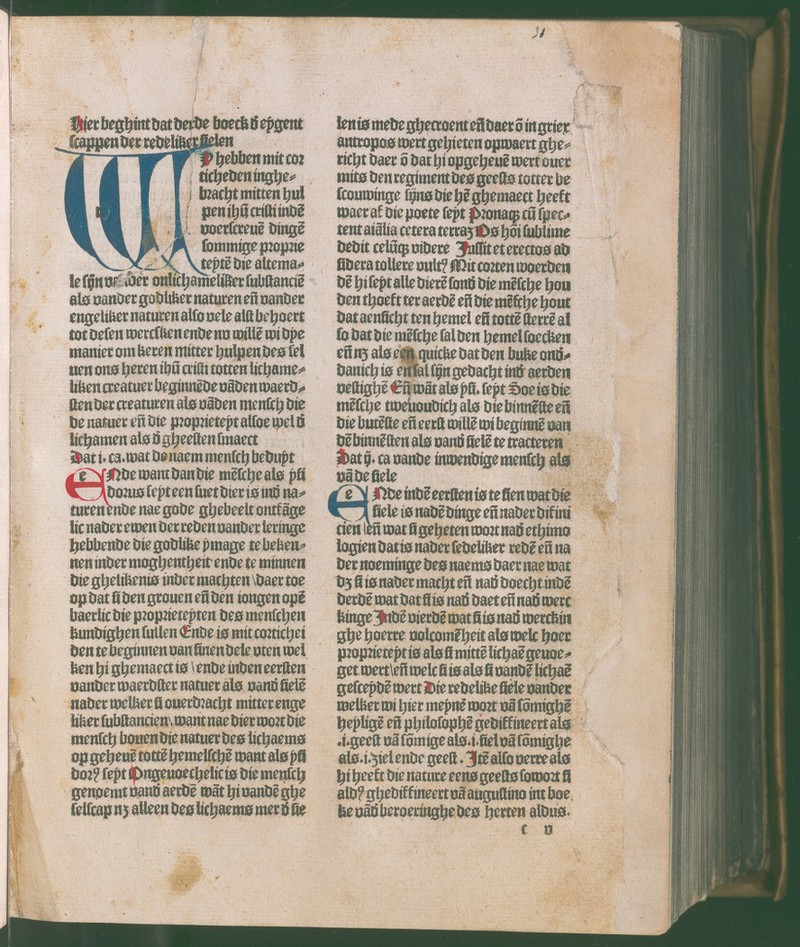 31
Hier beghint dat derde boeck đ eygent
scappen der redeliker sielen
Wy hebben mit cor
ticheden inghe⸗
bracht mitten hul
pen ihū cristi indē
voerscreuē dingē
sommige proprie
teytē die altema⸗
le sijn onlichameliker substanciē
als vander godliker naturen eñ vander
engeliker naturen also vele alst behoert
tot desen wercsken ende nv willē wi dye
manier om keren mitter hulpen des sel
uen ons heren ihū cristi totten lichame⸗
liken creatuer beginnēde vāden waerd⸗
sten der creaturen als vāden mensch die
de natuer eñ die proprieteyt alsoe wel đ
lichamen als đ gheesten smaect
Dat i. ca. wat de naem mensch beduyt
eNde want dan die mēsche als ysi
dorus seyt een suet dier is inđ na⸗
turen ende nae gode ghebeelt ontfāge
lic nader ewen der reden vander leringe
hebbende die godlike ymage te beken⸗
nen inder moghentheit ende te minnen
die ghelikenis inder machten \ daer toe
op dat si den grouen eñ den iongen opē
baerlic die proprieteyten des menschen
kundighen sullen Ende is mit cortichei
den te beginnen van sinen dele vten wel
ken hi ghemaect is \ ende inden eersten
vander waerdster natuer als vanđ sielē
nader welker si ouerdracht mitter enge
liker substancien \ want nae dier wort die
mensch bouen die natuer des lichaems
op geheuē tottē hemelschē want als ysi
dorꝰ seyt Ongeuoechelic is die mensch
genoemt vanđ aerdē wāt hi vandē ghe
selscap nȝ alleen des lichaems mer đ sie
len is mede ghecroent eñ daer ō in griex
antropos wert gehieten opwaert ghe⸗
richt daer ō dat hi opgeheuē wert ouer
mits den regiment des geests totter be
scouwinge sijns die hē ghemaect heeft
waer af die poete seyt Pronaqȝ cū spec⸗
tent aiālia cetera terraȝ Os hōi sublime
dedit celūqȝ videre Jussit et erectos ad
sidera tollere vultꝰ Mit corten woerden
dē hi seyt alle dierē sonđ die mēsche hou
den thoeft ter aerdē eñ die mēsche hout
dat aensicht ten hemel eñ tottē sterrē al
so dat die mēsche sal den hemel soecken
eñ nȝ als een quicke dat den buke onđ⸗
danich is en sal sijn gedacht inđ aerden
vestighē Eñ wāt als ysi. seyt Soe is die
mēsche tweuoudich als die binnēste eñ
die butēste eñ eerst willē wi beginnē van
dē binnēsten als vanđ sielē te tracteren
Dat ij. ca vande inwendige mensch als
vā de siele
eNde indē eersten is te sien wat die
siele is nadē dinge eñ nader difini
cien \ eñ wat si geheten wort nađ ethimo
logien dat is nader sedeliker redē eñ na
der noeminge des naems daer nae wat
dȝ si is nader macht eñ nađ doecht indē
derdē wat dat si is nađ daet eñ nađ werc
kinge Indē vierdē wat si is nađ werckin
ghe hoerre volcomēheit als welc hoer
proprieteyt is als si mittē lichaē geuoe⸗
get wert \ eñ welc si is als si vandē lichaē
gesceydē wert Die redelike siele vander
welker wi hier meynē wort vā sōmighē
heyligē eñ philosophē gediffineert als
.i. geest vā sōmige als .i. siel vā sōmighe
als .i. ziel ende geest. Jtē also verre als
hi heeft die nature eens geests so wort si
aldꝰ ghediffineert vā augustino int boe
ke vāđ beroeringhe des herten aldus.
c v